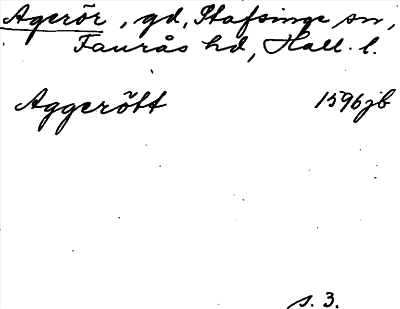 Agerör, gd, Stafsinge sn,
Faurås hd, Hall. l.
Aggerött 1596 jb
s. 3.